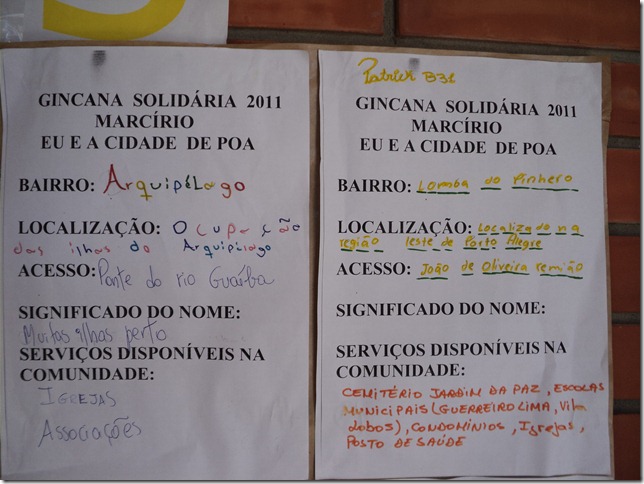 GINCANA SOLIDÁRIA 2011
MARCÍRIO
EU E A CIDADE DE POA
BAIRRO: Arquipélago
LOCALIZAÇÃO: Ocupação
das ilhas do Arquipélago
ACESSO: Ponte do rio Guaíba
SIGNIFICADO DO NOME:
Muitas ilhas perto
SERVIÇOS DISPONÍVEIS NA
COMUNIDADE:
IGREJAS
Associações
Patrick B31
GINCANA SOLIDÁRIA 2011
MARCÍRIO
EU E A CIDADE DE POA
BAIRRO: Lomba do Pinhero
LOCALIZAÇÃO: Localizado na
região leste de Porto Alegre
ACESSO: João de Oliveira remião
SIGNIFICADO DO NOME:
SERVIÇOS DISPONÍVEIS NA
COMUNIDADE:
CEMITÉRIO JARDIM DA PAZ, ESCOLAS
MUNICIPAIS (GUERREIRO LIMA, Villa
lobos), CONDOMÍNIOS, Igrejas,
POSTO DE SAÚDE